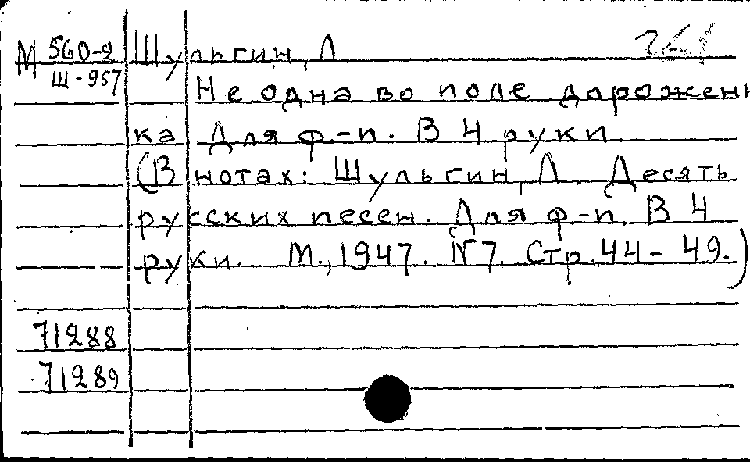 М 560-2 Шульгин, Л
Ш-957
Не одна во поле дорожень
ка Для ф.-п. В 4 руки.
(В нотах: Шульгин, Л. Десять
русских песен. Для ф-п. В 4
руки. М., 1947. №7. Стр. 44-49.)
71288
71289